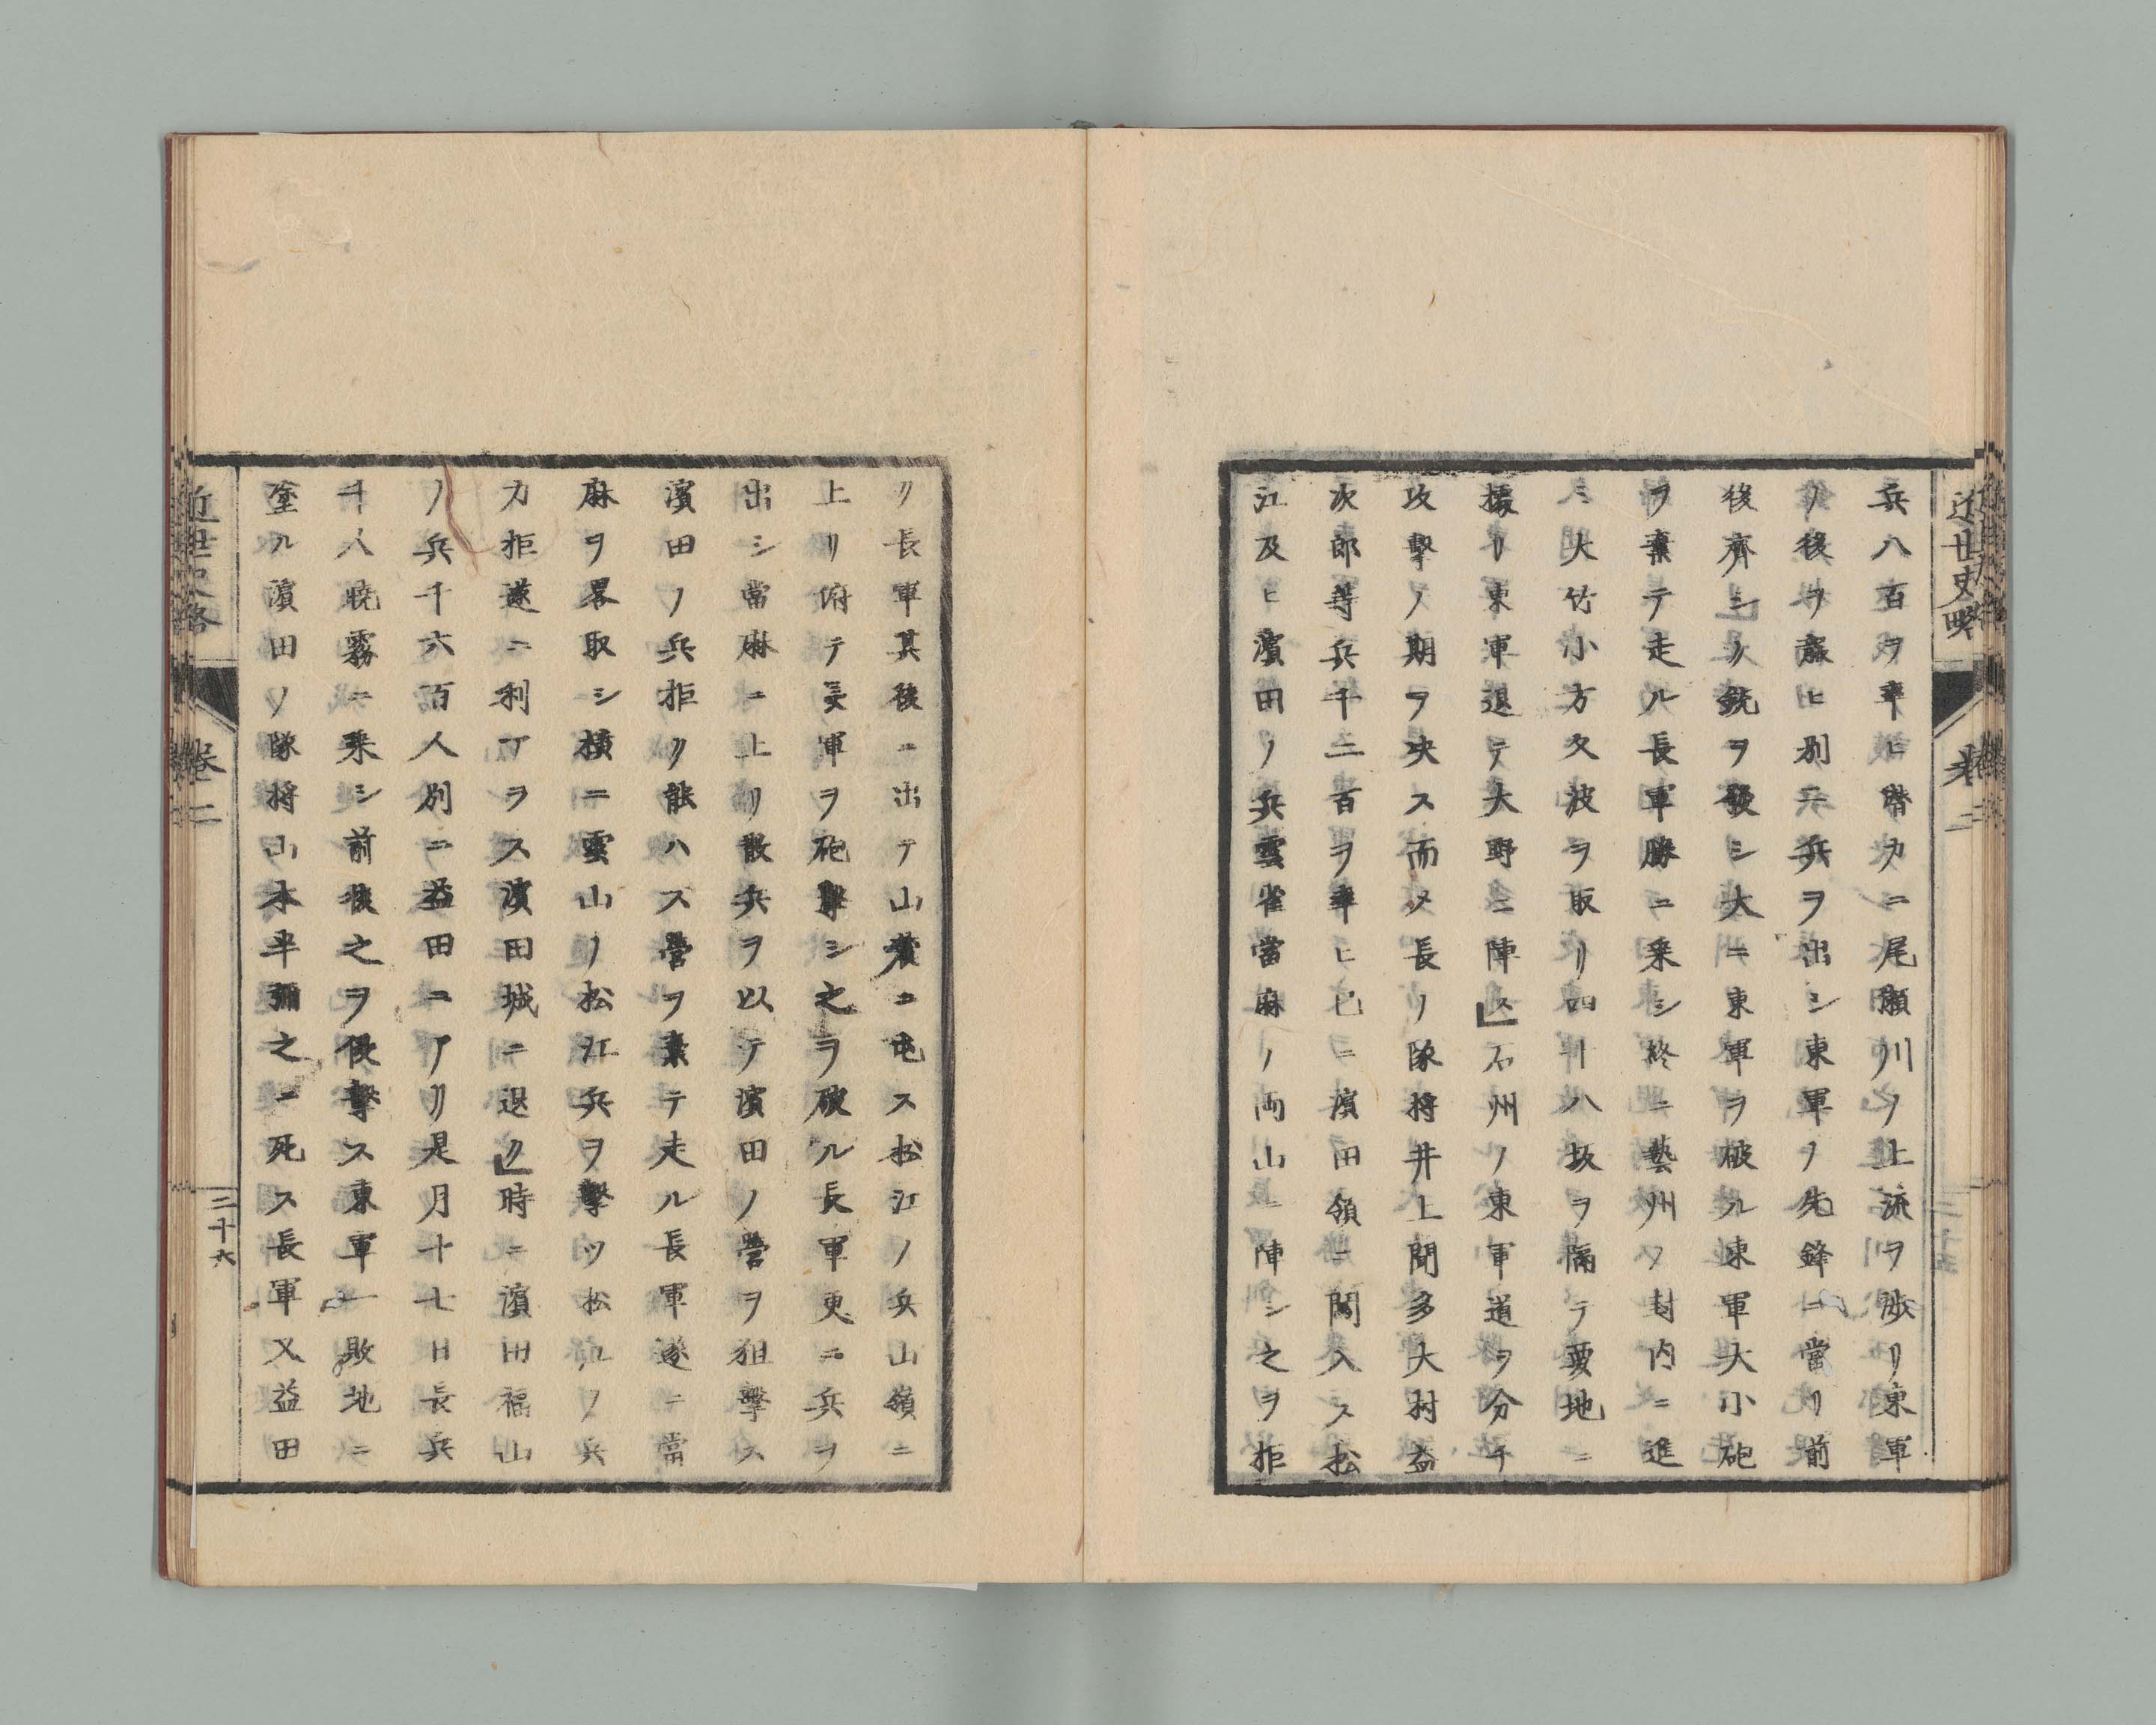 近世史略 卷二
兵八百ヲ率ヒ潜カニ尾瀬川ノ上流ヲ渉リ東軍
ノ後ヲ蔽ヒ別ニ兵ヲ出シ東軍ノ先鋒ニ當リ前
後齊シク銃ヲ發シ大ニ東軍ヲ破ル東軍大小砲
ヲ棄テ走ル長軍勝ニ乗シ終ニ藝州ノ封内ニ進
ミ大竹小方玖波ヲ取リ四十八坂ヲ隔テ要地ニ
據リ東軍退テ大野ニ陣ス」石州ノ東軍道ヲ分チ
攻擊ノ期ヲ决ス而メ長ノ隊将井上聞多大村益
次郎等兵千二百ヲ率ヒ已ニ濱田領ニ闌入ス松
江及ヒ濱田ノ兵雲雀當麻ノ両山ニ陣シ之ヲ拒
リ長軍其後ニ出テ山麓ニ屯ス松江ノ兵山嶺ニ
上リ俯テ長軍ヲ砲擊シ之ヲ破ル長軍更ニ兵ヲ
出シ當麻ニ上リ散兵ヲ以テ濱田ノ營ヲ狙擊ス
濱田ノ兵拒ク能ハス營ヲ棄テ走ル長軍遂ニ當
麻ヲ畧取シ横ニ雲山ノ松江兵ヲ擊ツ松江ノ兵
力拒遂ニ利アラス濱田城ニ退ク」時ニ濱田福山
ノ兵千六百人別ニ益田ニアリ是月十七日長兵
千人曉霧ニ乗シ前後之ヲ侵擊ス東軍一敗地ニ
塗ル濱田ノ隊将山本半彌之ニ死ス長軍又益田
近世史略 卷二 三十六